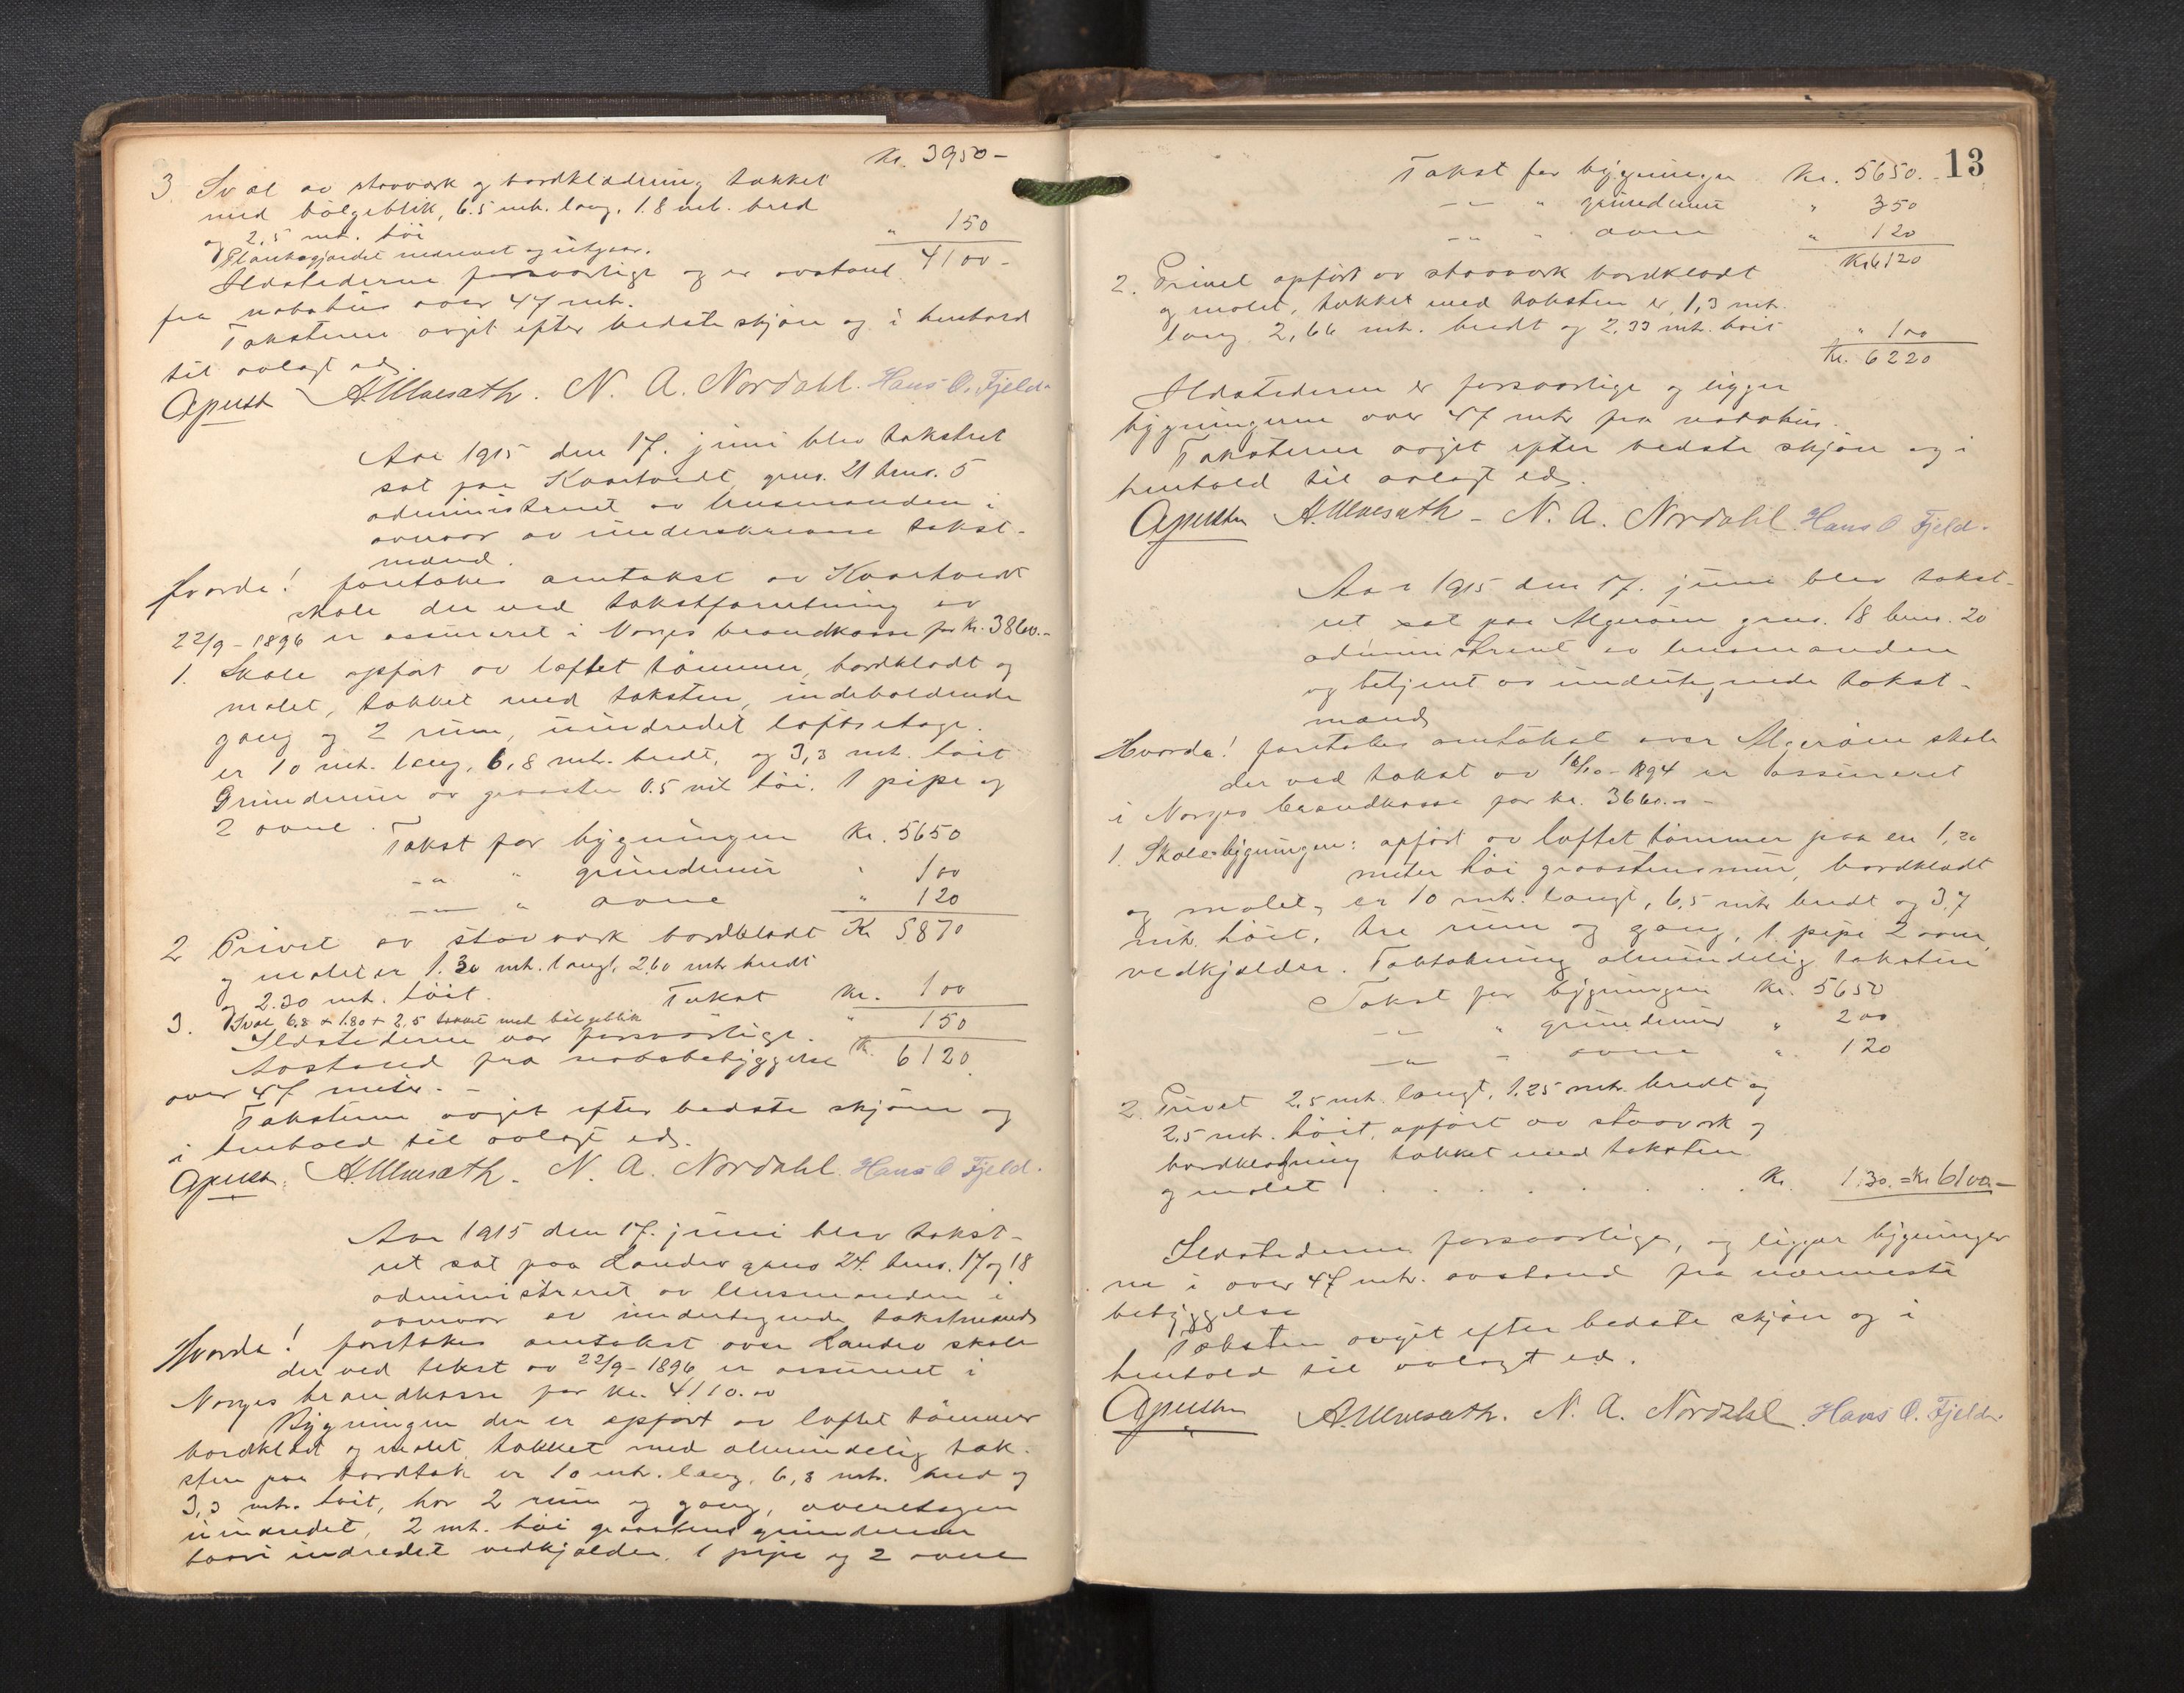 Kr. 3950 –
3. Sval av stavverk og bordklædning takket
med bølgeblik, 6.5 mtr. lang, 1.8 mtr. bred
og 2,5 mtr. høi " 150
Plankegjærdet nedrevet og utgaar. 4100 –
Ildstederne forsvarlige og er avstand
fra nabohus over 47 mtr.
Taksterne avgit efter bedste skjøn og i henhold
til avlagt ed.
A. Ulvesæth. N. A. Nordahl. Hans O. Fjeld.
Aar 1915 den 17. juni blev takstret
sat paa Kvartveit, gno. 21 bno. 5
administreret av lensmanden i
nærvær av underskrevne takst-
mænd.
Hvorda! foretokes omtakst av Kvartveit
skole der ved takstforretning av
22/9 - 1896 er assureret i Norges brandkasse for kr. 3860.–
1. Skole opført av laftet tømmer, bordklædt og
malet, takket med taksten, indeholdende
gang og 2 rum, uindredet loftsetage.
er 10 mtr. lang, 6,8 mtr. bredt, og 3,3 mtr. høit
Grundmur av graasten 0.5 mtr høi. 1 pipe og
2 ovne.
Takst for bygningen Kr. 5650
– " – " grundmur " 100
– " – " ovne " 120
2 Privet av stavverk bordklædt Kr 5870
og malet er 1.30 mtr. langt, 2.60 mtr bredt
og 2.30 mtr. høit. Takst Kr. 100
3. Sval 6.8 × 1.80 × 2,5 takket med bølgeblik " 150
Ildstederne var forsvarlige.
Avstand fra nabobebyggelse Kr. 6120.
over 47 meter. –
Taksterne avgit efter bedste skjøn og
i henhold til avlagt ed.
A. Ulvesæth. N. A. Nordahl Hans O Fjeld.
Aar 1915 den 17. juni blev takst-
ret sat paa Landro gno 24. bno. 17 og 18
administreret av lensmanden i
nærvær av undertegnede takstmænd
Hvorda! foretokes omtakst over Landro skole
der ved takst av 22/9 - 1896 er assureret i
Norges brandkasse for kr. 4110.00
Bygningen der er opført av laftet tømmer
bordklædt og malet, takket med almindelig tak-
sten paa bordtak er 10 mtr. lang, 6,8 mtr. bred og
3,3 mtr. høit, har 2 rum og gang, overetagen
uindredet, 2 mtr. høi graastens grundmur
hvori indredet vedkjælder, 1 pipe og 2 ovne
13
Takst for bygningen Kr. 5650.
– " – " grundmur " 350
– " – " ovne " 120
Kr 6120
2. Privet opført av stavverk bordklædt
og malet, takket med taksten er 1,3 mtr.
lang 2,66 mtr. bredt og 2,33 mtr. høit " 100
Kr. 6220
Ildstederne er forsvarlige og ligger
bygningerne over 47 mtr fra nabohus.
Taksterne avgit efter bedste skjøn og i
henhold til avlagt ed.
A. Ulvesæth – N. A. Nordahl Hans O Fjeld.
Aar 1915 den 17. juni blev takst-
ret sat paa Algerøen gno. 18 bno. 20
administreret av lensmanden
og betjent av undertegnede takst-
mænd
Hvorda! foretokes omtakst over Algerøen skole
der ved takst av 16/10 - 1894 er assureret
i Norges brandkasse for kr. 3660.–
1. Skolebygningen: opført av laftet tømmer paa en 1,20
meter høi graastensmur, bordklædt
og malet, er 10 mtr. langt, 6,5 mtr bredt og 3,7
mtr. høit, tre rum og gang, 1 pipe 2 ovne,
vedkjælder. Taktækning almindelig taksten
Takst for bygningen Kr. 5650
– " – " grundmur " 200
– " – " ovne " 120
2. Privet 2,5 mtr. langt, 1,25 mtr. bredt og
2,5 mtr. høit, opført av stavverk og
bordklædning takket med taksten
og malet . . . . . . . . Kr. 130. = Kr 6100 –
Ildstederne forsvarlige, og ligger bygninger
ne i over 47 mtr. avstand fra nærmeste
bebyggelse
Taksten avgit efter bedste skjøn og i
henhold til avlagt ed.
A. Ulvesæth. N. A. Nordahl Hans O. Fjeld.